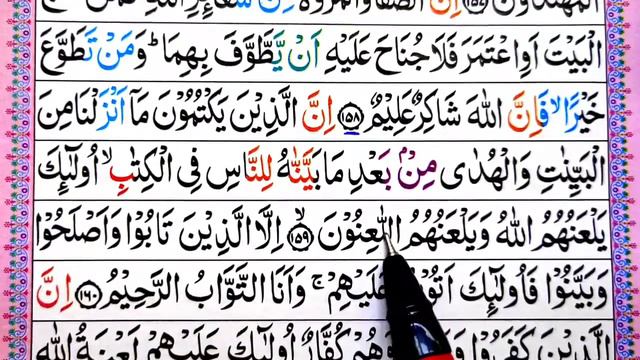 الْمُهْتَدُوْنَ ﴿۱۵۷﴾ اِنَّ الصَّفَا وَالْمَرْوَةَ مِنْ شَعَآئِرِ اللّٰهِ
الْبَيْتَ اَوِ اعْتَمَرَ فَلَا جُنَاحَ عَلَيْهِ اَنْ يَّطَّوَّفَ بِهِمَا ؕ وَمَنْ تَطَوَّعَ
خَيْرًا ۙ فَاِنَّ اللّٰهَ شَاكِرٌ عَلِيْمٌ ﴿۱۵۸﴾ اِنَّ الَّذِيْنَ يَكْتُمُوْنَ مَآ اَنْزَلْنَا مِنَ
الْبَيِّنٰتِ وَالْهُدٰى مِنْۢ بَعْدِ مَا بَيَّنّٰهُ لِلنَّاسِ فِى الْكِتٰبِ ۙ اُولٰٓئِكَ
يَلْعَنُهُمُ اللّٰهُ وَيَلْعَنُهُمُ اللّٰعِنُوْنَ ۙ ﴿۱۵۹﴾ اِلَّا الَّذِيْنَ تَابُوْا وَاَصْلَحُوْا
وَبَيَّنُوْا فَاُولٰٓئِكَ اَتُوْبُ عَلَيْهِمْ ۚ وَاَنَا التَّوَّابُ الرَّحِيْمُ ﴿۱۶۰﴾ اِنَّ
الَّذِيْنَ كَفَرُوْا وَهُمْ كُفَّارٌ اُولٰٓئِكَ عَلَيْهِمْ لَعْنَةُ اللّٰهِ